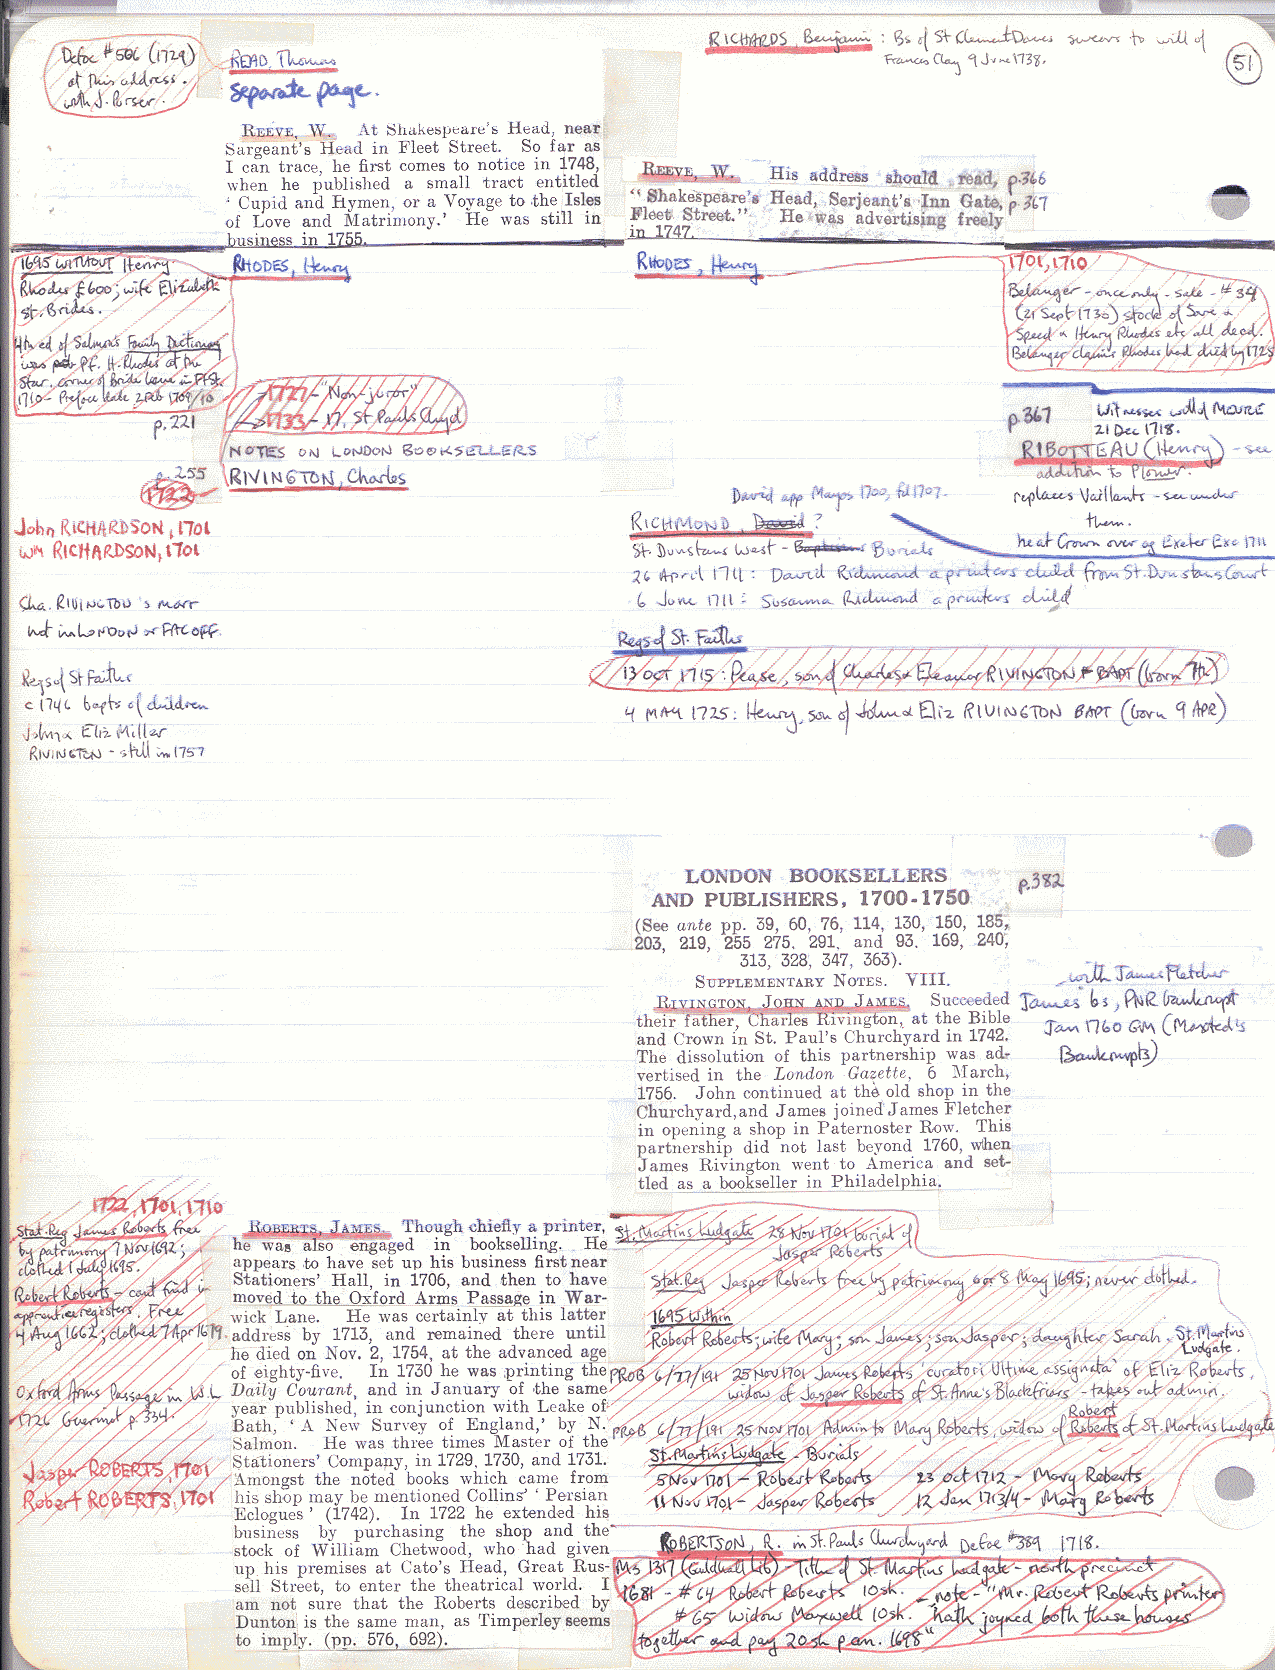 Defoe #506 (1729)
at this address.
with J. Purser.
READ, Thomas
separate page.
RICHARDS, Benjamin : Bs of St Clement Danes swears to will of
Francis Clay 9 June 1738.
51
REEVE, W. At Shakespeare's Head, near
Sargeant's Head in Fleet Street. So far as
I can trace, he first comes to notice in 1748,
when he published a small tract entitled
' Cupid and Hymen, or a Voyage to the Isles
of Love and Matrimony.' He was still in
business in 1755.
REEVE, W. His address should read, p.366
" Shakespeare's Head, Serjeant's Inn Gate, p.367
Fleet Street." He was advertising freely
in 1747.
1695 WITHOUT Henry
Rhodes £600; wife Elizabeth
St. Brides.
4th ed of Salmon's Family Dictionary
was Pf. H. Rhodes at the
Star, corner of Bride Lane in Fl St.
1710 - Preface date 2 Feb 1709/10
p.221
RHODES, Henry
RHODES, Henry
1701, 1710
Belanger - once only - sale - #34
(21 Sept 1730) stock of Sare &
Speed & Henry Rhodes etc all decd.
Belanger claims Rhodes had died by 1725
1727 - "Non-juror"
1733 - 17, St Pauls Chyd
NOTES ON LONDON BOOKSELLERS
RIVINGTON, Charles
p.255
1722
p.367 Witnesses will of MOORE
21 Dec 1718.
RIBOTTEAU (Henry) - see
addition to Plomer.
replaces Vaillants - see under
them.
he at Crown over ag Exeter Exc 1711
John RICHARDSON, 1701
Wm RICHARDSON, 1701
David app Mayos 1700, fd 1707.
RICHMOND, David ?
St. Dunstans West - Baptisms Burials
26 April 1711 : David Richmond a printers child from St. Dunstans Court
6 June 1711 : Susanna Richmond a printers child
Cha. RIVINGTON's marr
not in LONDON or FAC OFF.
Regs of St. Faiths
13 OCT 1715 : Pease, son of Charles & Eleanor RIVINGTON BAPT (born 7th)
4 MAY 1725 : Henry, son of John & Eliz RIVINGTON BAPT (born 9 APR)
Regs of St Faiths
c 1746 bapts of children
John & Eliz Miller
RIVINGTON - still in 1757
LONDON BOOKSELLERS
AND PUBLISHERS, 1700-1750
p.382
(See ante pp. 39, 60, 76, 114, 130, 150, 185,
203, 219, 255 275. 291. and 93. 169, 240,
313, 328, 347, 363).
SUPPLEMENTARY NOTES. VIII.
RIVINGTON, JOHN AND JAMES. Succeeded
their father, Charles Rivington, at the Bible
and Crown in St. Paul's Churchyard in 1742.
The dissolution of this partnership was ad-
vertised in the London Gazette, 6 March,
1756. John continued at the old shop in the
Churchyard, and James joined James Fletcher
in opening a shop in Paternoster Row. This
partnership did not last beyond 1760, when
James Rivington went to America and set-
tled as a bookseller in Philadelphia.
with James Fletcher
James bs, PNR bankrupt
Jan 1760 GM (Maxted's
Bankrupts)
1722, 1701, 1710
Stat. Reg James Roberts free
by patrimony 7 Nov 1692;
clothed 1 July 1695.
Robert Roberts - cant find in
apprentice registers. Free
4 Aug 1662; clothed 7 Apr 1679.
Oxford Arms Passage in W.L
1726 Guerinot p.334.
Jasper ROBERTS, 1701
Robert ROBERTS, 1701
ROBERTS, JAMES. Though chiefly a printer,
he was also engaged in bookselling. He
appears to have set up his business first near
Stationers' Hall, in 1706, and then to have
moved to the Oxford Arms Passage in War-
wick Lane. He was certainly at this latter
address by 1713, and remained there until
he died on Nov. 2, 1754, at the advanced age
of eighty-five. In 1730 he was printing the
Daily Courant, and in January of the same
year published, in conjunction with Leake of
Bath, ' A New Survey of England,' by N.
Salmon. He was three times Master of the
Stationers' Company, in 1729, 1730, and 1731.
Amongst the noted books which came from
his shop may be mentioned Collins' ' Persian
Eclogues ' (1742). In 1722 he extended his
business by purchasing the shop and the
stock of William Chetwood, who had given
up his premises at Cato's Head, Great Rus-
sell Street, to enter the theatrical world. I
am not sure that the Roberts described by
Dunton is the same man, as Timperley seems
to imply. (pp. 576, 692).
St. Martins Ludgate 28 Nov 1701 burial of
Jasper Roberts
Stat. Reg Jasper Roberts free by patrimony 6 or 8 May 1695; never clothed.
1695 Within
Robert Roberts; wife Mary; son James; son Jasper; daughter Sarah. St. Martins
Ludgate.
PROB 6/77/191 25 Nov 1701 James Roberts 'curatori Ultime assignata' of Eliz Roberts,
widow of Jasper Roberts of St. Anne's Blackfriars - takes out admin.
Robert
PROB 6/77/191 25 Nov 1701 Admin to Mary Roberts, widow of Roberts of St. Martins Ludgate
St. Martins Ludgate - Burials
5 Nov 1701 - Robert Roberts 23 Oct 1712 - Mary Roberts
11 Nov 1701 - Jasper Roberts 12 Jan 1713/4 - Mary Roberts
ROBERTSON, R. in St. Pauls Churchyard Defoe #389 1718.
Ms 1317 (Guildhall Lib) - Tithe of St. Martins Ludgate - north precinct
1681 - #64 Robert Roberts 10sh. - note - "Mr. Robert Roberts printer
#65 widow Maxwell 10sh. hath joyned both these houses
together and pay 20sh p an. 1698"